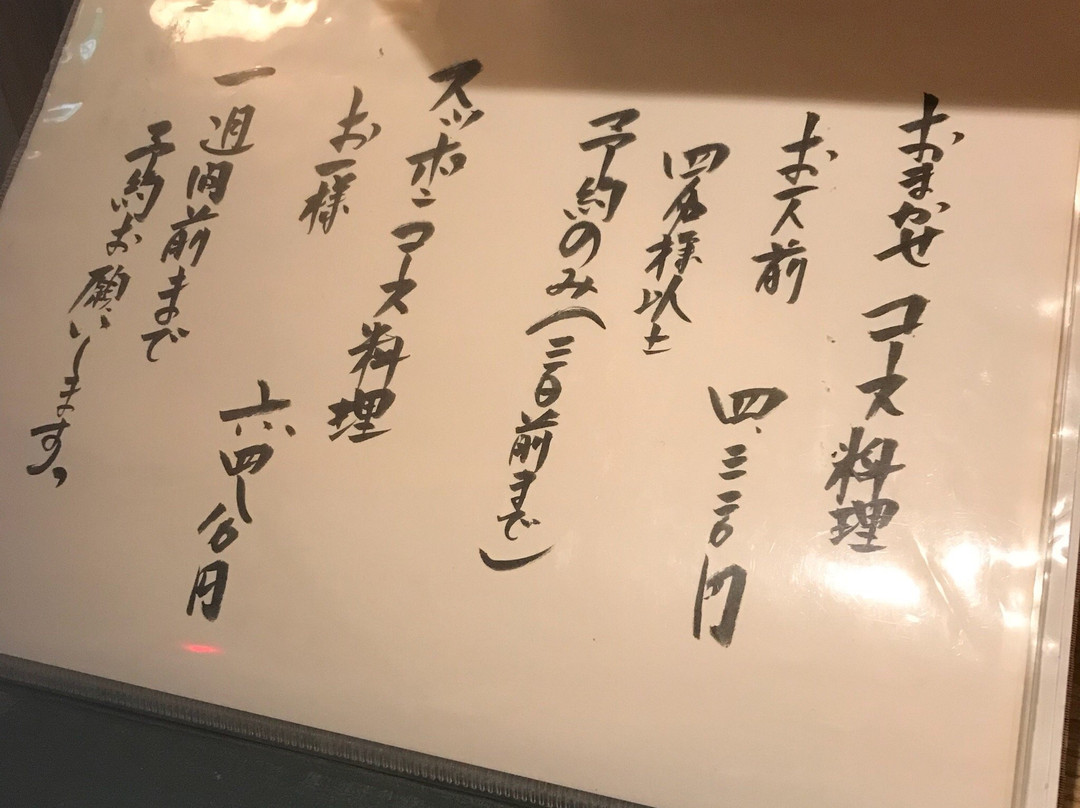 おまかせ コース料理
お一人前
四、三二〇円
四名様以上
予約のみ(三日前まで)
スッポンコース料理
お一人様
六、四八〇円
一週間前まで
予約お願いします。